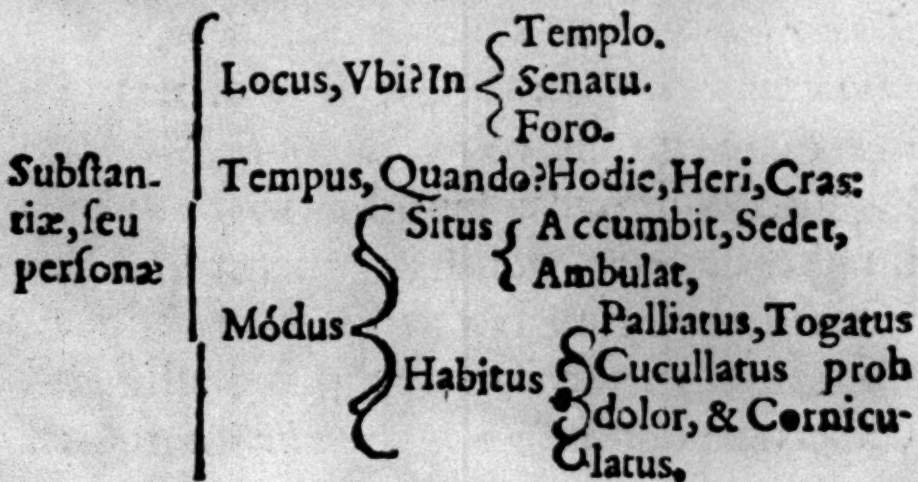 Substan-
tiæ, seu
personæ
Locus, Vbi? In
Templo.
Senatu.
Foro.
Tempus, Quando? Hodie, Heri, Cras:
Módus
Situs
Accumbit, Sedet,
Ambulat,
Habitus
Palliatus, Togatus
Cucullatus proh
dolor, & Cornicu-
latus.